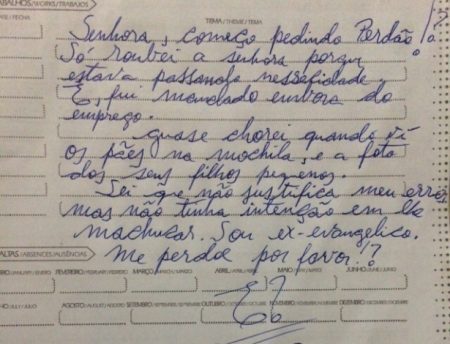 ABALHOS/WORKS/TRABAJOS
TEMA / THEME / TEMA
ATE / FECHA
Senhora, começo pedindo Perdão!?
Só roubei a senhora porque
estava passando nessecidade
E, fui mandado embora do
emprego.
quase chorei quando vi
os pães na mochila, e a foto
dos seus filhos pequenos.
Sei que não justifica meu erro,
mas não tinha intenção em lhe
machucar. Sou ex-evangelico.
Me perdoe por favor!?
ALTAS / ABSENCES / AUSÊNCIAS
FEVEREIRO / FEBRUARY / FEBRERO MARÇO / MARCH / MARZO ABRIL / APRIL / ABRIL MAIO / MAY / MAYO JUNHO / JUNE / JUNIO
HO / JULY / JULIO AGOSTO / AUGUST / AGOSTO SETEMBRO / SEPTEMBER / SEPTIEMBRE OUTUBRO / OCTOBER / OCTUBRE NOVEMBRO / NOVEMBER / NOVIEMBRE DEZEMBRO / DECEMBER / DICIEMBRE